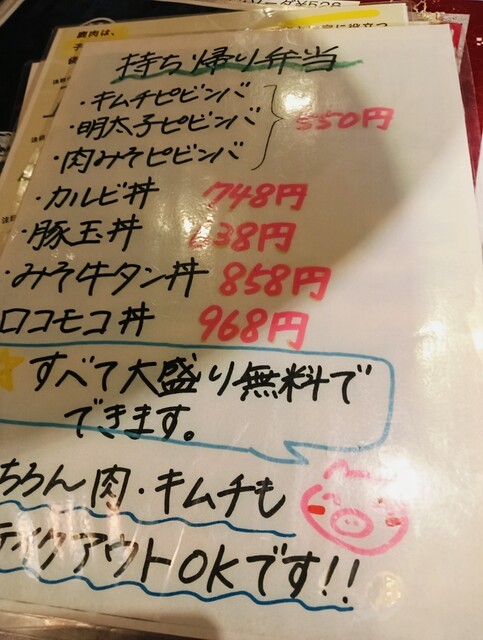 鹿肉は、
に役立つ
持ち帰り弁当
・キムチピビンバ
・明太子ピビンバ 550円
・肉みそピビンバ
・カルビ丼 748円
・豚玉丼 638円
・みそ牛タン丼 858円
ロコモコ丼 968円
すべて大盛り無料で
できます。
ちろん肉・キムチも
テイクアウトOKです!!